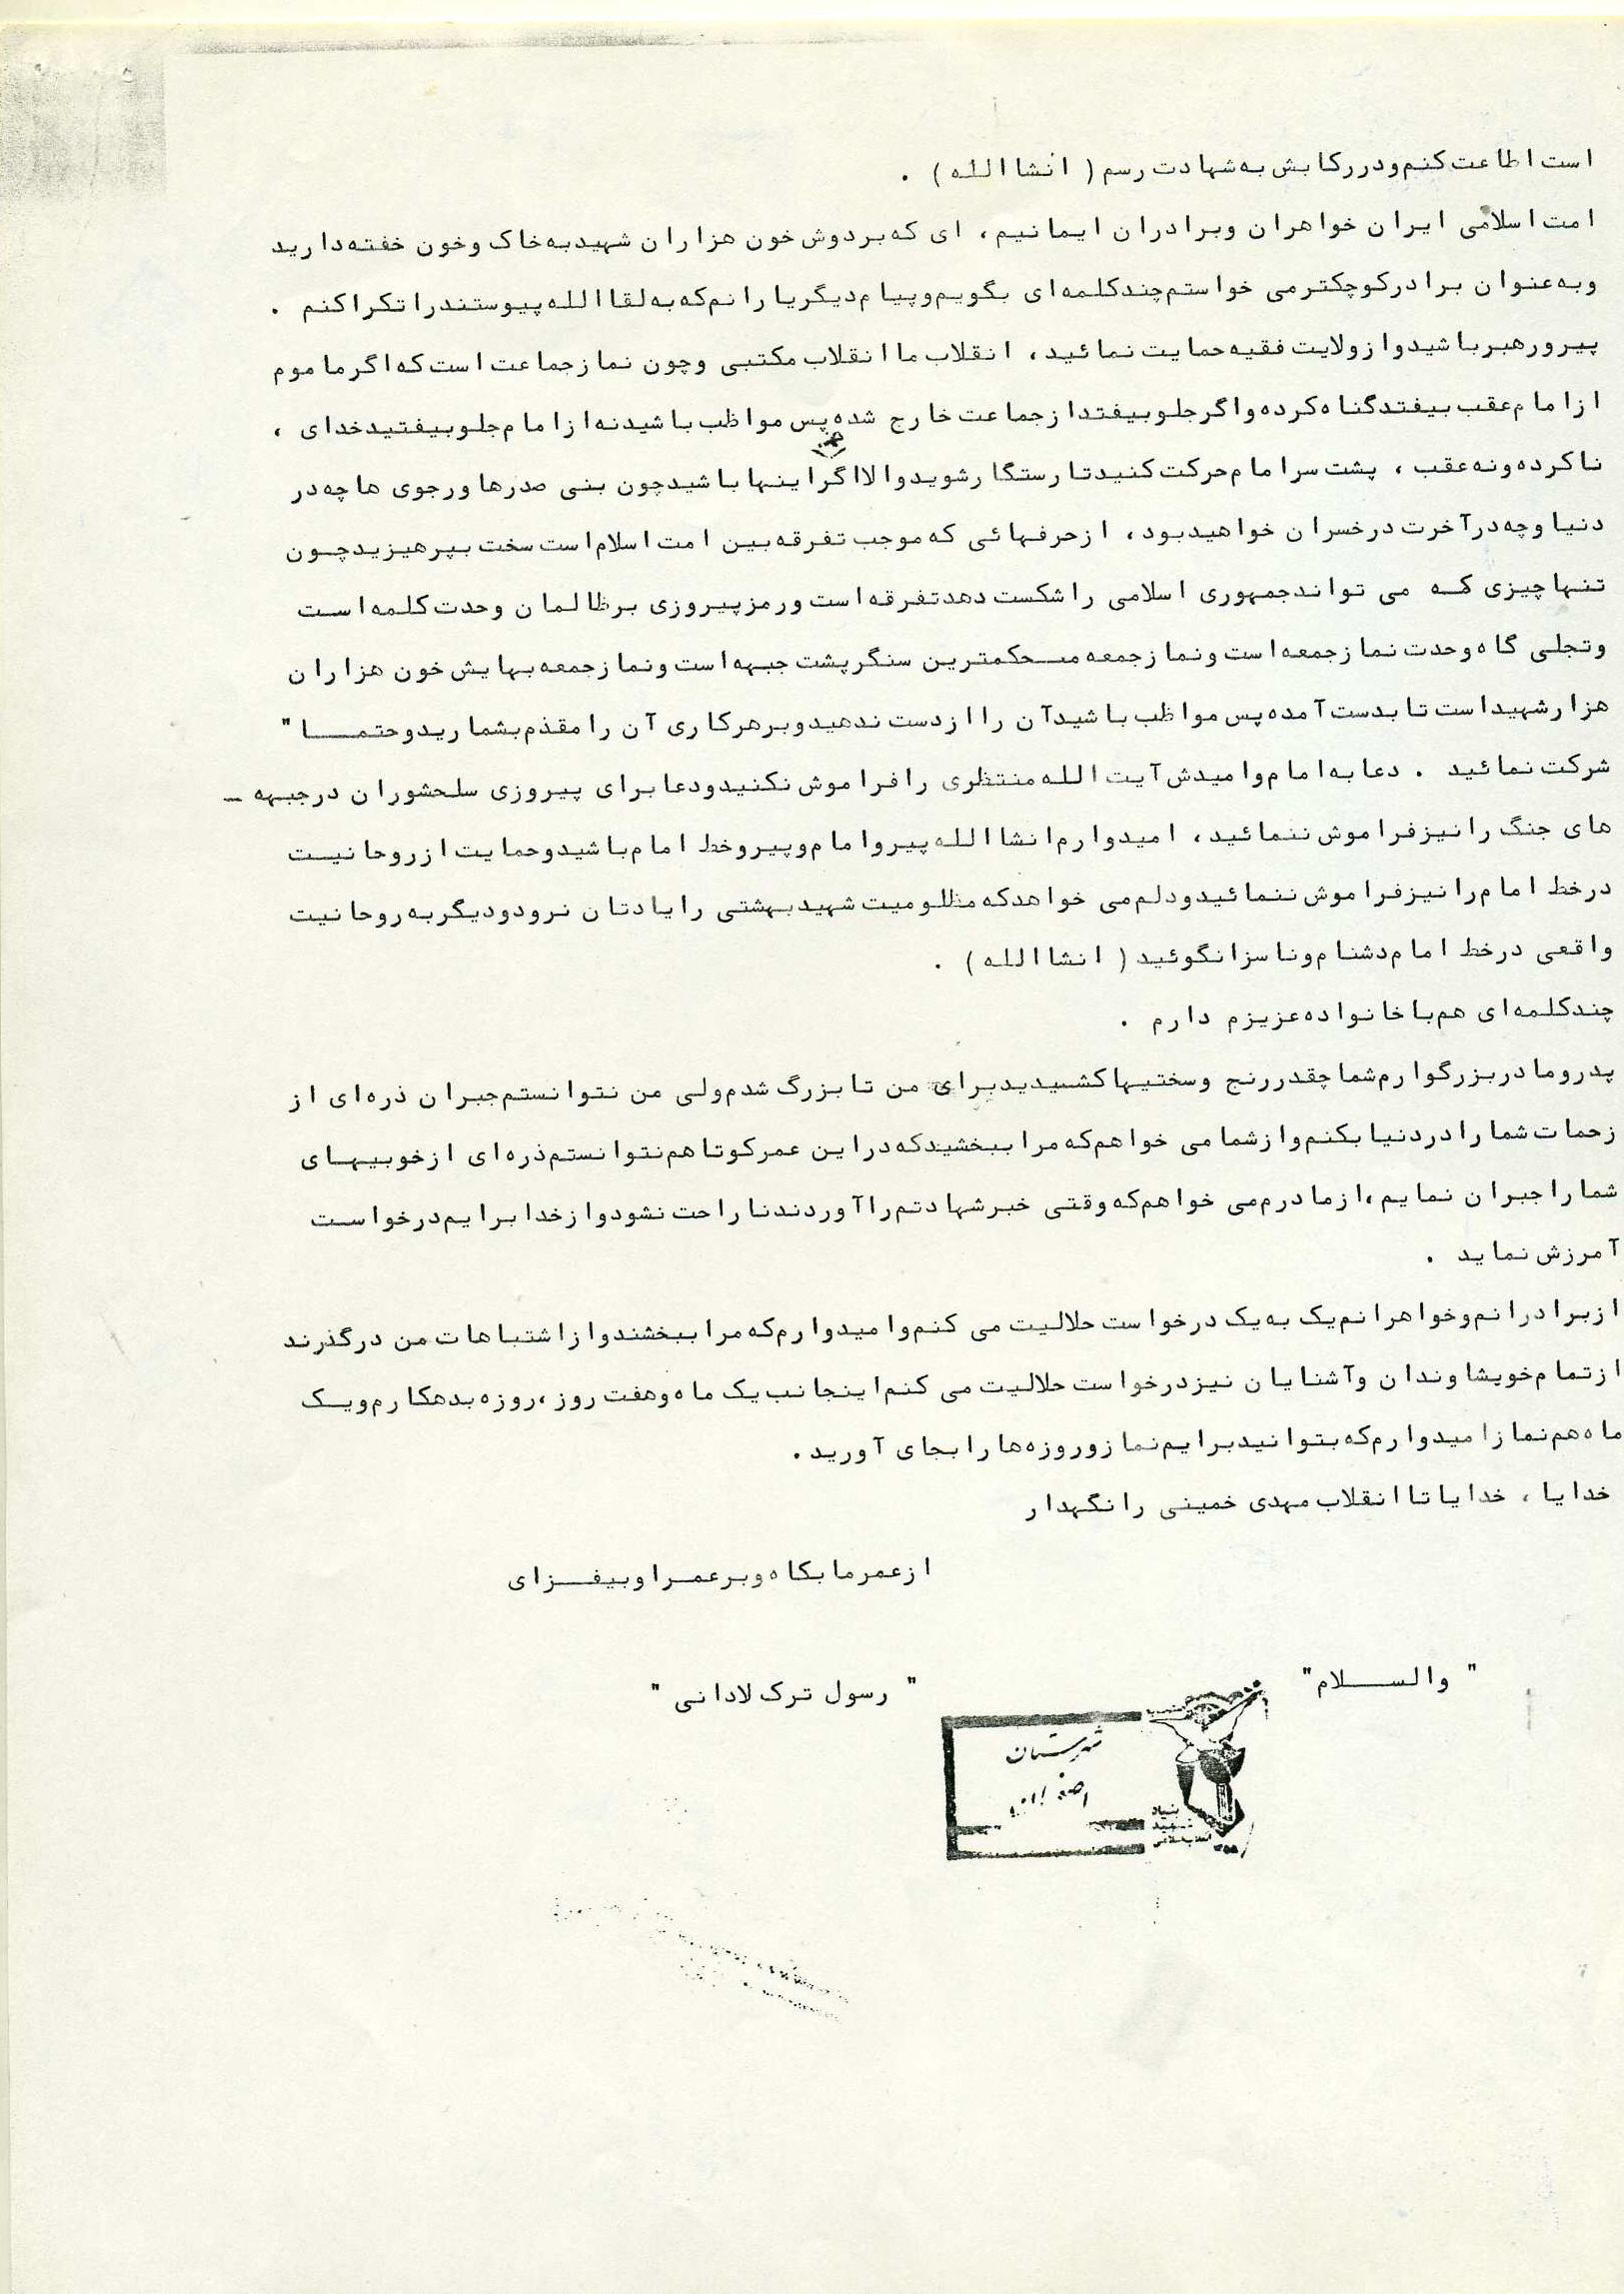 است اطاعت کنم ودر رکابش به شهادت رسم ( انشاالله ) .
امت اسلامی ایران خواهران وبرادران ایمانیم ، ای که بردوش خون هزاران شهیدبه خاک وخون خفته دارید
وبه عنوان برادرکوچکترمی خواستم چندکلمه ای بگویم وپیام دیگریارانم که به لقاالله پیوستندراتکراکنم .
پیرورهبرباشیدوازولایت فقیه حمایت نمائید ، انقلاب ما انقلاب مکتبی وچون نمازجماعت است که اگرماموم
ازامام عقب بیفتدگناه کرده واگرجلوبیفتدازجماعت خارج شده پس مواظب باشیدنه ازامام جلوبیفتیدخدای ،
ناکرده ونه عقب ، پشت سرامام حرکت کنیدتارستگارشویدوالااگراینهاباشیدچون بنی صدرهاورجوی هاچه در
دنیاوچه درآخرت درخسران خواهیدبود ، ازحرفهائی که موجب تفرقه بین امت اسلام است سخت بپرهیزیدچون
تنهاچیزی که می تواندجمهوری اسلامی راشکست دهدتفرقه است ورمزپیروزی برظالمان وحدت کلمه است
وتجلی گاه وحدت نمازجمعه است ونمازجمعه محکمترین سنگرپشت جبهه است ونمازجمعه بهایش خون هزاران
هزارشهیداست تابدست آمده پس مواظب باشیدآن راازدست ندهیدوبرهرکاری آن رامقذم بشماریدوحتما "
شرکت نمائید . دعابه امام وامیدش آیت الله منتظری رافراموش نکنیدودعابرای پیروزی سلحشوران درجبهه _
های جنگ رانیزفراموش ننمائید ، امیدوارم انشاالله پیروامام وپیروخط امام باشیدوحمایت ازروحانیت
درخط امام رانیزفراموش ننمائیدودلم می خواهدکه مظلومیت شهیدبهشتی رایادتان نرودودیگربه روحانیت
واقعی درخط امام دشنام وناسزانگوئید ( انشاالله ) .
چندکلمه ای هم باخانواده عزیزم دارم .
پدرومادربزرگوارم شماچقدررنج وسختیهاکشیدیدبرای من تابزرگ شدم ولی من نتوانستم جبران ذره ای از
زحمات شمارادردنیابکنم وازشمامی خواهم که مراببخشیدکه دراین عمرکوتاهم نتوانستم ذره ای ازخوبیهای
شماراجبران نمایم ،ازمادرم می خواهم که وقتی خبرشهادتم راآوردندناراحت نشودوازخدابرایم درخواست
آمرزش نماید .
ازبرادرانم وخواهرانم یک به یک درخواست حلالیت می کنم وامیدوارم که مراببخشندوازاشتباهات من درگذرند
ازتمام خویشاوندان وآشنایان نیزدرخواست حلالیت می کنم اینجانب یک ماه وهفت روز ،روزه بدهکارم ویک
ماه هم نمازامیدوارم که بتوانیدبرایم نمازوروزه هارابجای آورید .
خدایا ، خدایاتاانقلاب مهدی خمینی رانگهدار
ازعمرمابکاه وبرعمراوبیفزای
" والسلام"
" رسول ترک لادانی "
شهرستان
اصفهان
بنیاد
شهید
انقلاب اسلامی